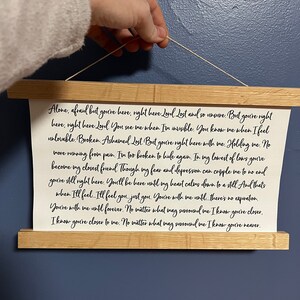 Alone, afraid but you're here, right here Lord. Lost and so unsure. But you're right
here, right here Lord. You see me when I'm invisible. You know me when I feel
unlovable. Broken. Ashamed. Lost. But you're right here with me. Holding me. No
more running from pain. I'm too broken to hide again. In my lowest of lows you've
become my closest friend. Though my fear and depression can cripple me to no end
you're still right here. You'll be here until my heart calms down to a still. And that's
when I'll feel, I'll feel you, just you. You're with me until, there's no expiration.
You're with me until forever. No matter what may surround me I know you're closer,
I know you're closer to me. No matter what may surround me I know you're nearer,